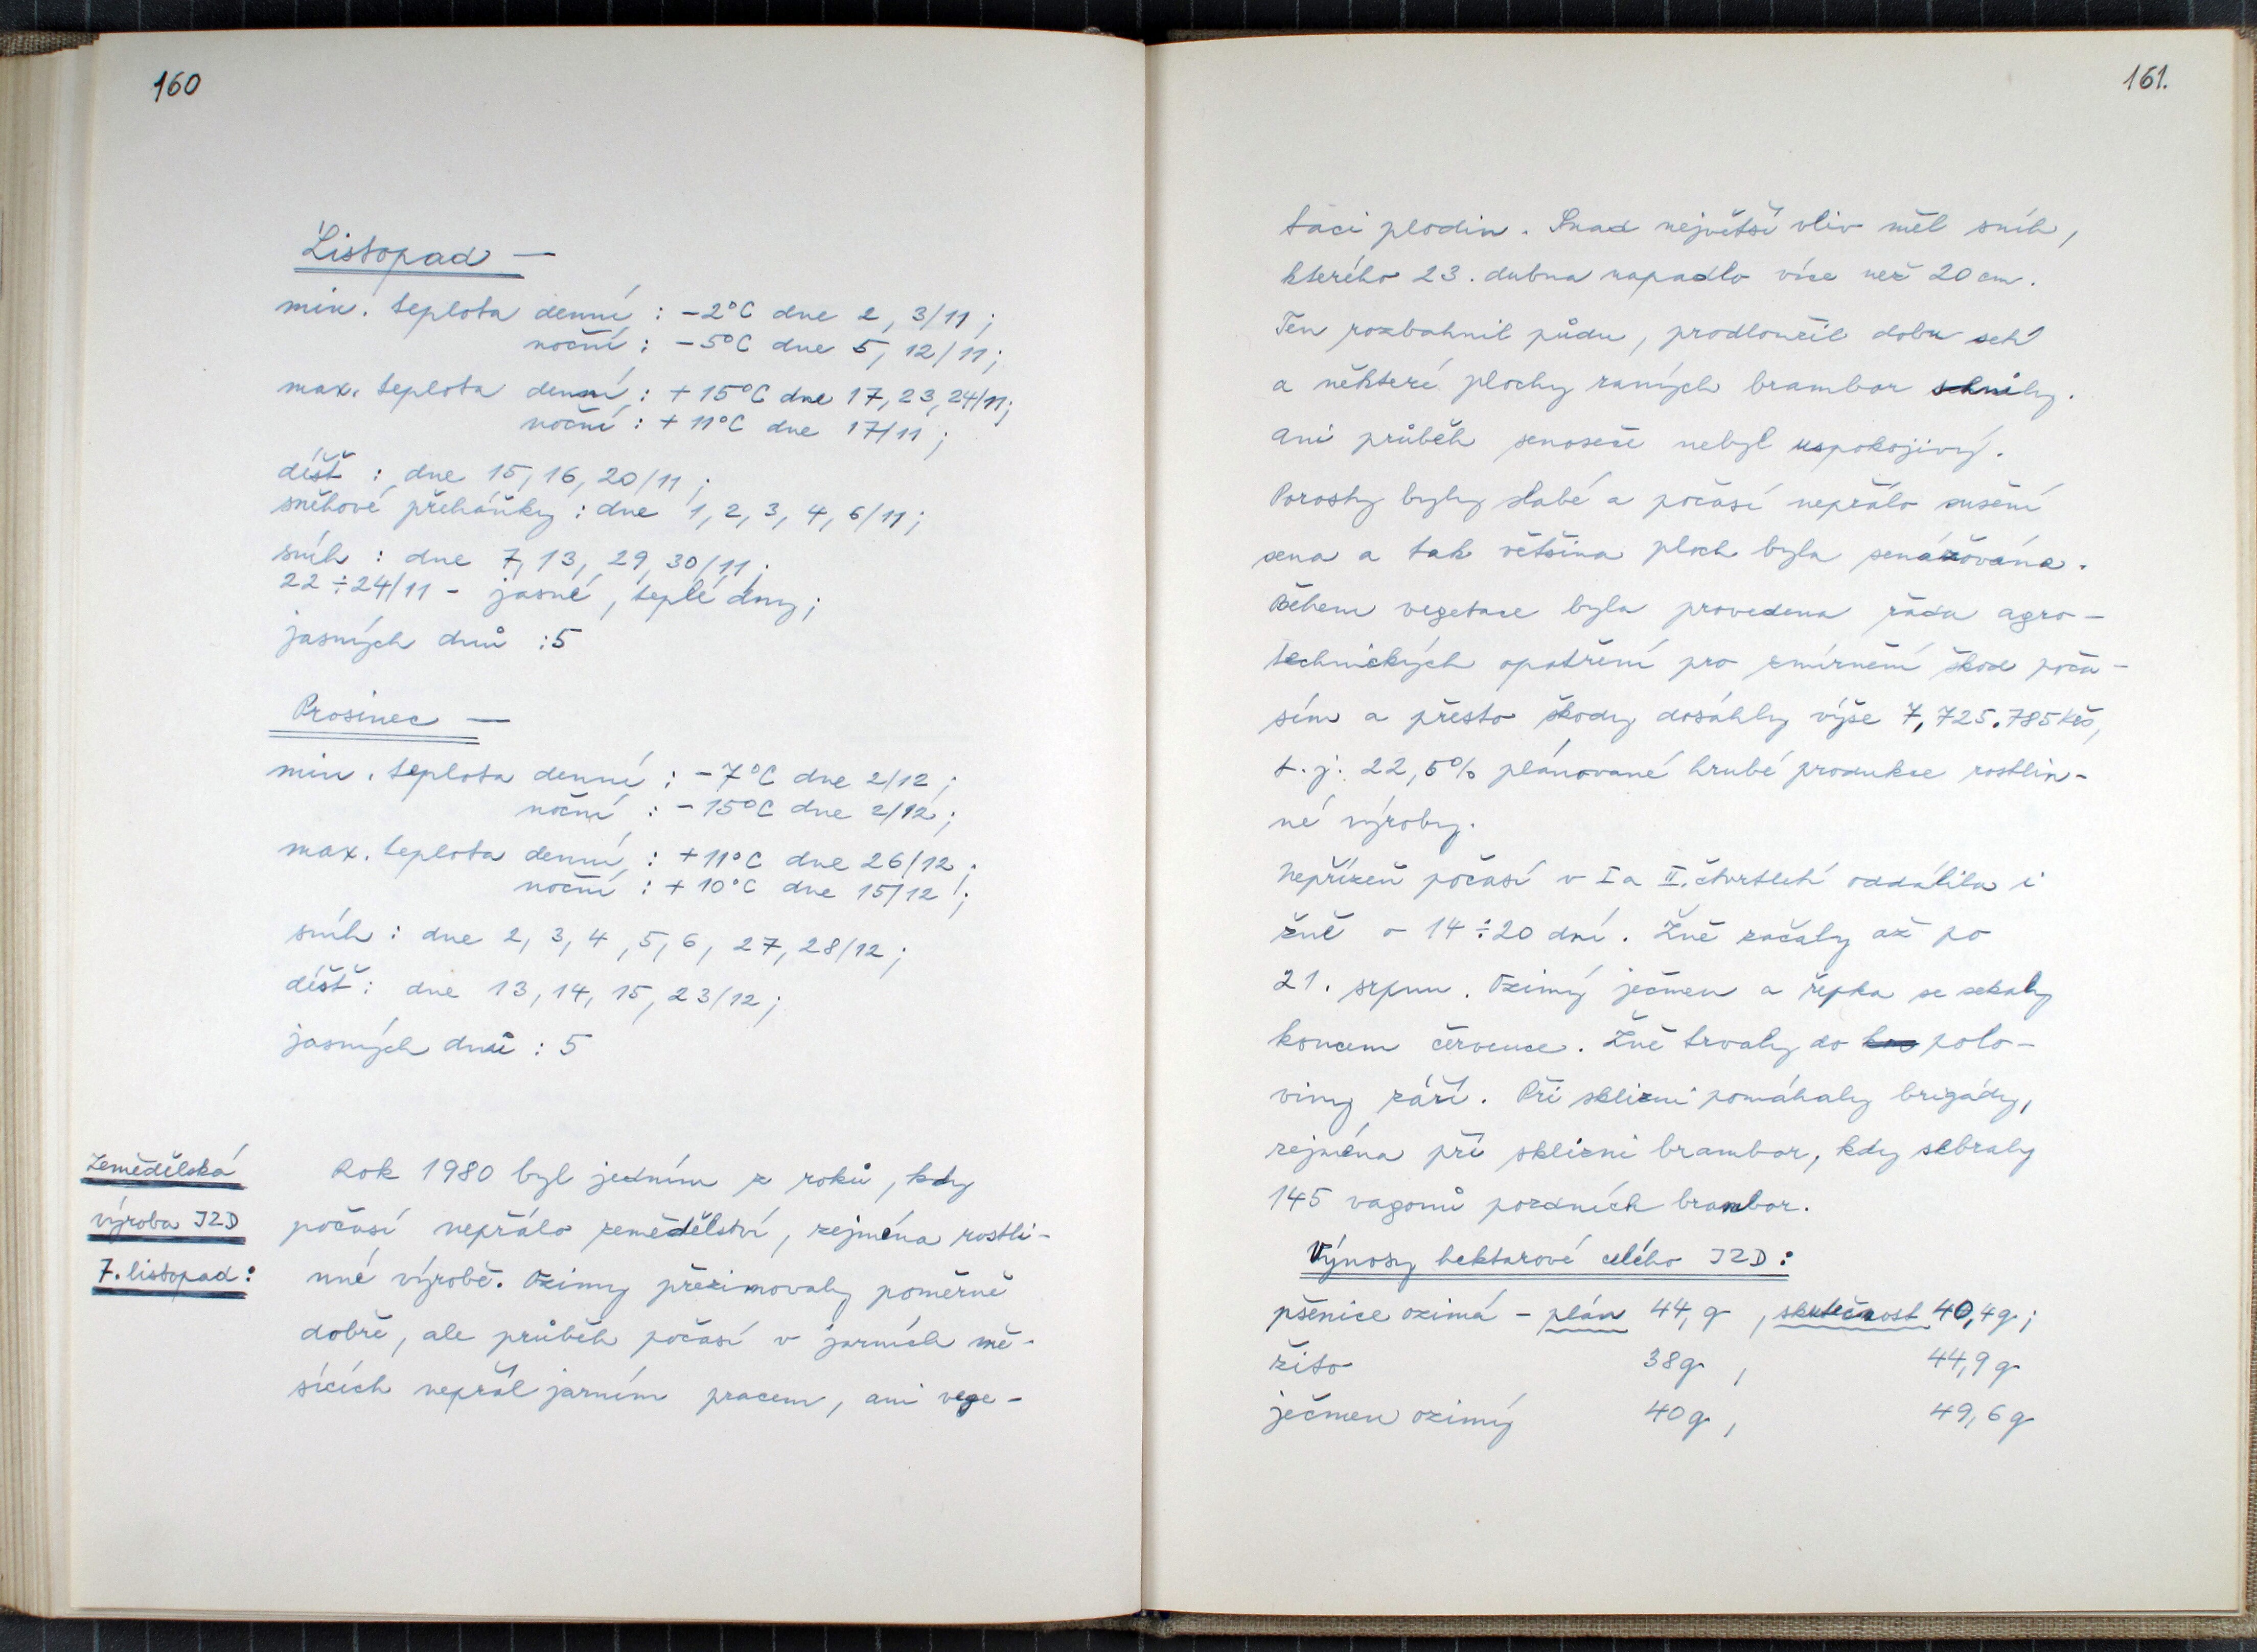 160
Listopad —
min. teplota denní : -2°C dne 2, 3/11 ;
noční : -5°C dne 5, 12/11 ;
max. teplota denní : +15°C dne 17, 23, 24/11;
noční : +11°C dne 17/11 ;
déšť : dne 15, 16, 20/11 ;
sněhové přeháňky : dne 1, 2, 3, 4, 6/11 ;
sníh : dne 7, 13, 29, 30/11 ;
22÷24/11 - jasné, teplé dny ;
jasných dnů : 5
Prosinec —
min. teplota denní : -7°C dne 2/12 ;
noční : -15°C dne 2/12 ;
max. teplota denní : +11°C dne 26/12 ;
noční : +10°C dne 15/12 ;
sníh : dne 2, 3, 4, 5, 6, 27, 28/12 ;
déšť : dne 13, 14, 15, 23/12 ;
jasných dnů : 5
Zemědělská
výroba JZD
7. listopad :
Rok 1980 byl jedním z roků, kdy
počasí nepřálo zemědělství, zejména rostli-
nné výrobě. Ozimy přezimovaly poměrně
dobře, ale průběh počasí v jarních mě-
sících nepřál jarním pracem, ani vege-
161.
taci plodin. Snad největší vliv měl sníh,
kterého 23. dubna napadlo více než 20 cm.
Ten rozbahnil půdu, prodloužil dobu setí
a některé plochy raných brambor shnily.
Ani průběh senoseče nebyl uspokojivý.
Porosty byly slabé a počasí nepřálo sušení
sena a tak většina ploch byla senážována.
Během vegetace byla provedena řada agro-
technických opatření pro zmírnění škod poča-
sím a přesto škody dosáhly výše 7,725.785 Kčs,
t. j. 22,5% plánované hrubé produkce rostlin-
né výroby.
Nepřízeň počasí v I a II. čtvrtletí oddálila i
žně o 14÷20 dní. Žně začaly až po
21. srpnu. Ozimý ječmen a řepka se sekaly
koncem července. Žně trvaly do polo-
viny září. Při sklizni pomáhaly brigády,
zejména při sklizni brambor, kdy sebraly
145 vagonů pozdních brambor.
Výnosy hektarové celého JZD :
pšenice ozimá - plán 44, q , skutečnost 40,4q ;
žito 38q , 44,9 q
ječmen ozimý 40q , 49,6 q